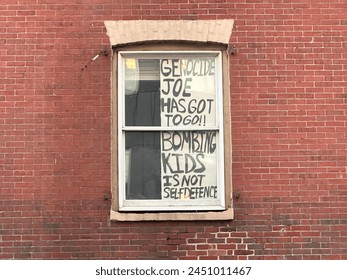 GENOCIDE
JOE
HAS GOT
TO GO!!
BOMBING
KIDS
IS NOT
SELFDEFENCE
shutterstock.com · 2451011467